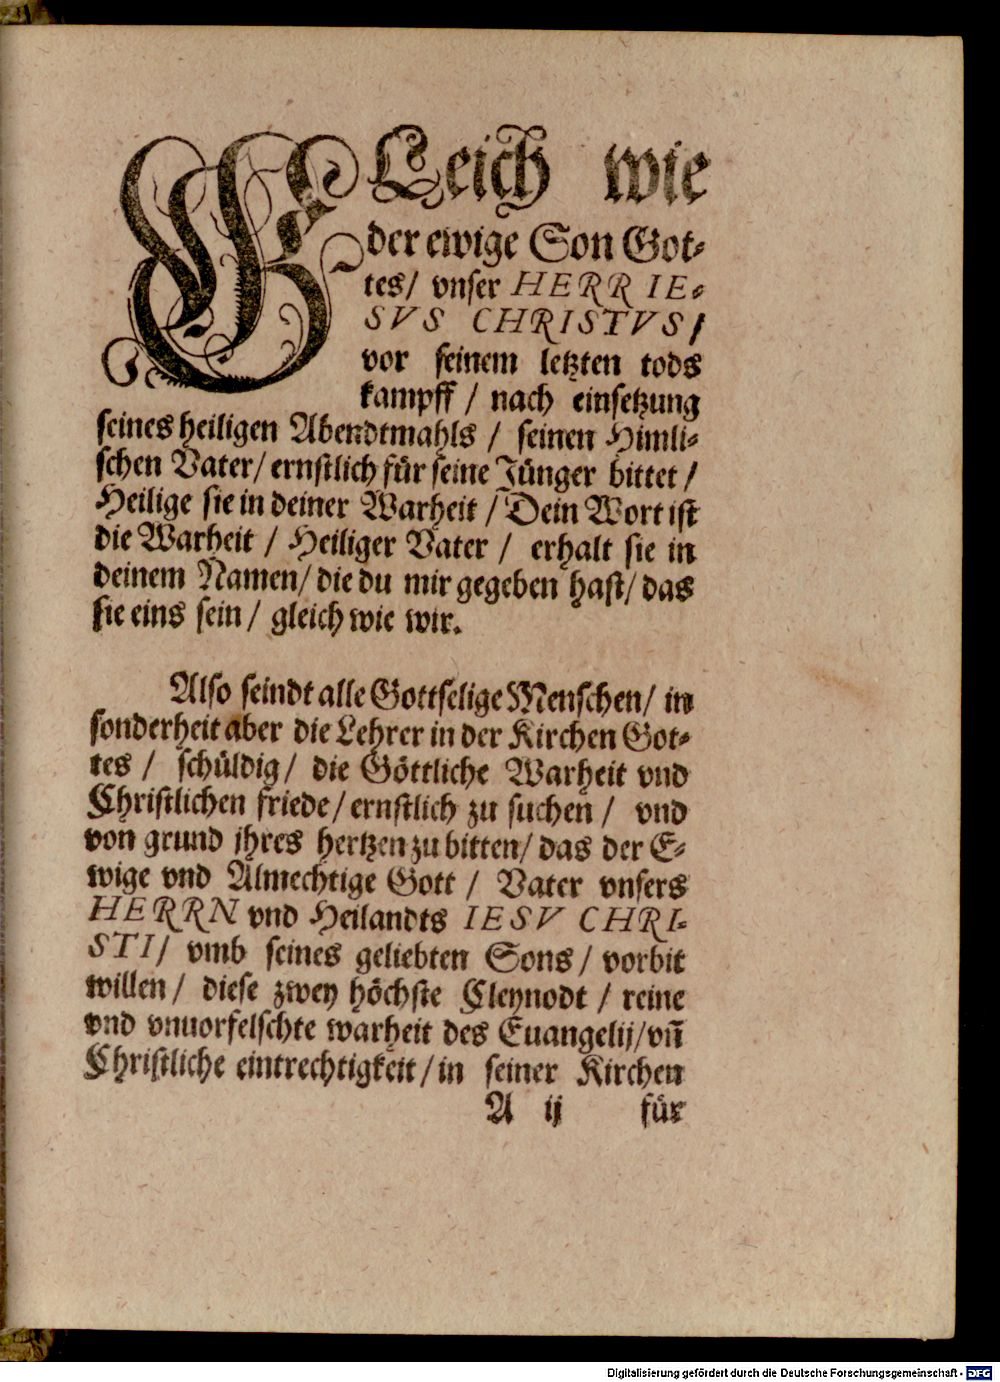 GLeich wie
der ewige Son Got⸗
tes/ vnser HERR IE⸗
SVS CHRISTVS/
vor seinem letzten tods
kampff / nach einsetzung
seines heiligen Abendtmahls / seinen Himli⸗
schen Vater/ ernstlich für seine Jünger bittet /
Heilige sie in deiner Warheit / Dein Wort ist
die Warheit / Heiliger Vater / erhalt sie in
deinem Namen/ die du mir gegeben hast/ das
sie eins sein/ gleich wie wir.
Also seindt alle Gottselige Menschen/ in
sonderheit aber die Lehrer in der Kirchen Got⸗
tes / schüldig/ die Göttliche Warheit vnd
Christlichen friede/ ernstlich zu suchen / vnd
von grund jhres hertzen zu bitten/ das der E⸗
wige vnd Almechtige Gott / Vater vnsers
HERRN vnd Heilandts IESV CHRI⸗
STI/ vmb seines geliebten Sons/ vorbit
willen/ diese zwey höchste Cleynodt / reine
vnd vnuorfelschte warheit des Euangelij/ vñ
Christliche eintrechtigkeit/ in seiner Kirchen
A ij für
Digitalisierung gefördert durch die Deutsche Forschungsgemeinschaft - DFG